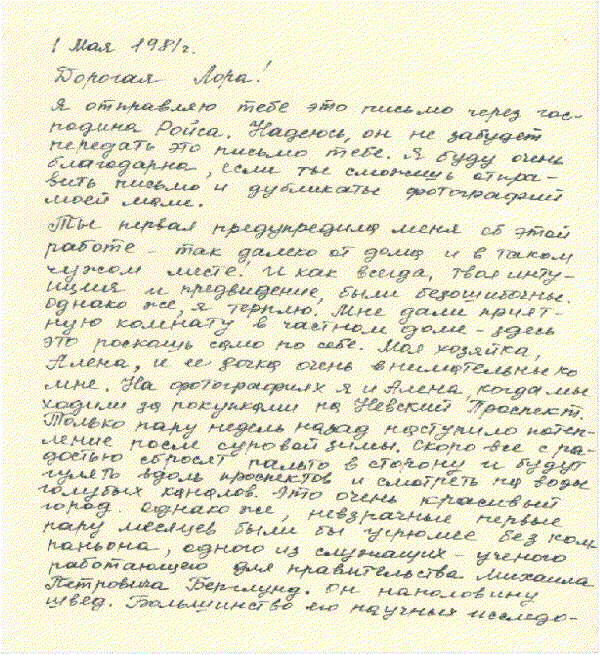 1 Мая 1981г.
Дорогая Лора!
Я отправляю тебе это письмо через гос-
подина Ройса. Надеюсь, он не забудет
передать это письмо тебе. Я буду очень
благодарна, если ты сможешь отпра-
вить письмо и дубликаты фотографий
моей маме.
Ты первая предупредила меня об этой
работе – так далеко от дома и в таком
чужом месте. И как всегда, твоя инту-
иция и предвидение, были безошибочны.
однако же, я терплю. Мне дали прият-
ную комнату в частном доме – здесь
это роскошь само по себе. Моя хозяйка,
Алена, и ее дочка очень внимательны ко
мне. На фотографиях я и Алена, когда мы
ходили за покупками на Невский Проспект.
Только пару недель назад наступило потеп-
ление после суровой зимы. Скоро все с ра-
достью сбросят пальто в сторону и будут
гулять вдоль проспектов и смотреть на воды
голубых каналов. Это очень красивый
город. однако же, невзрачные первые
пару месяцев были бы угрюмее без ком
раньона, одного из служащих – ученого
работающего для правительства Михаила
Петровича Берглунд. он наполовину
швед. Большинство его научных исследо-